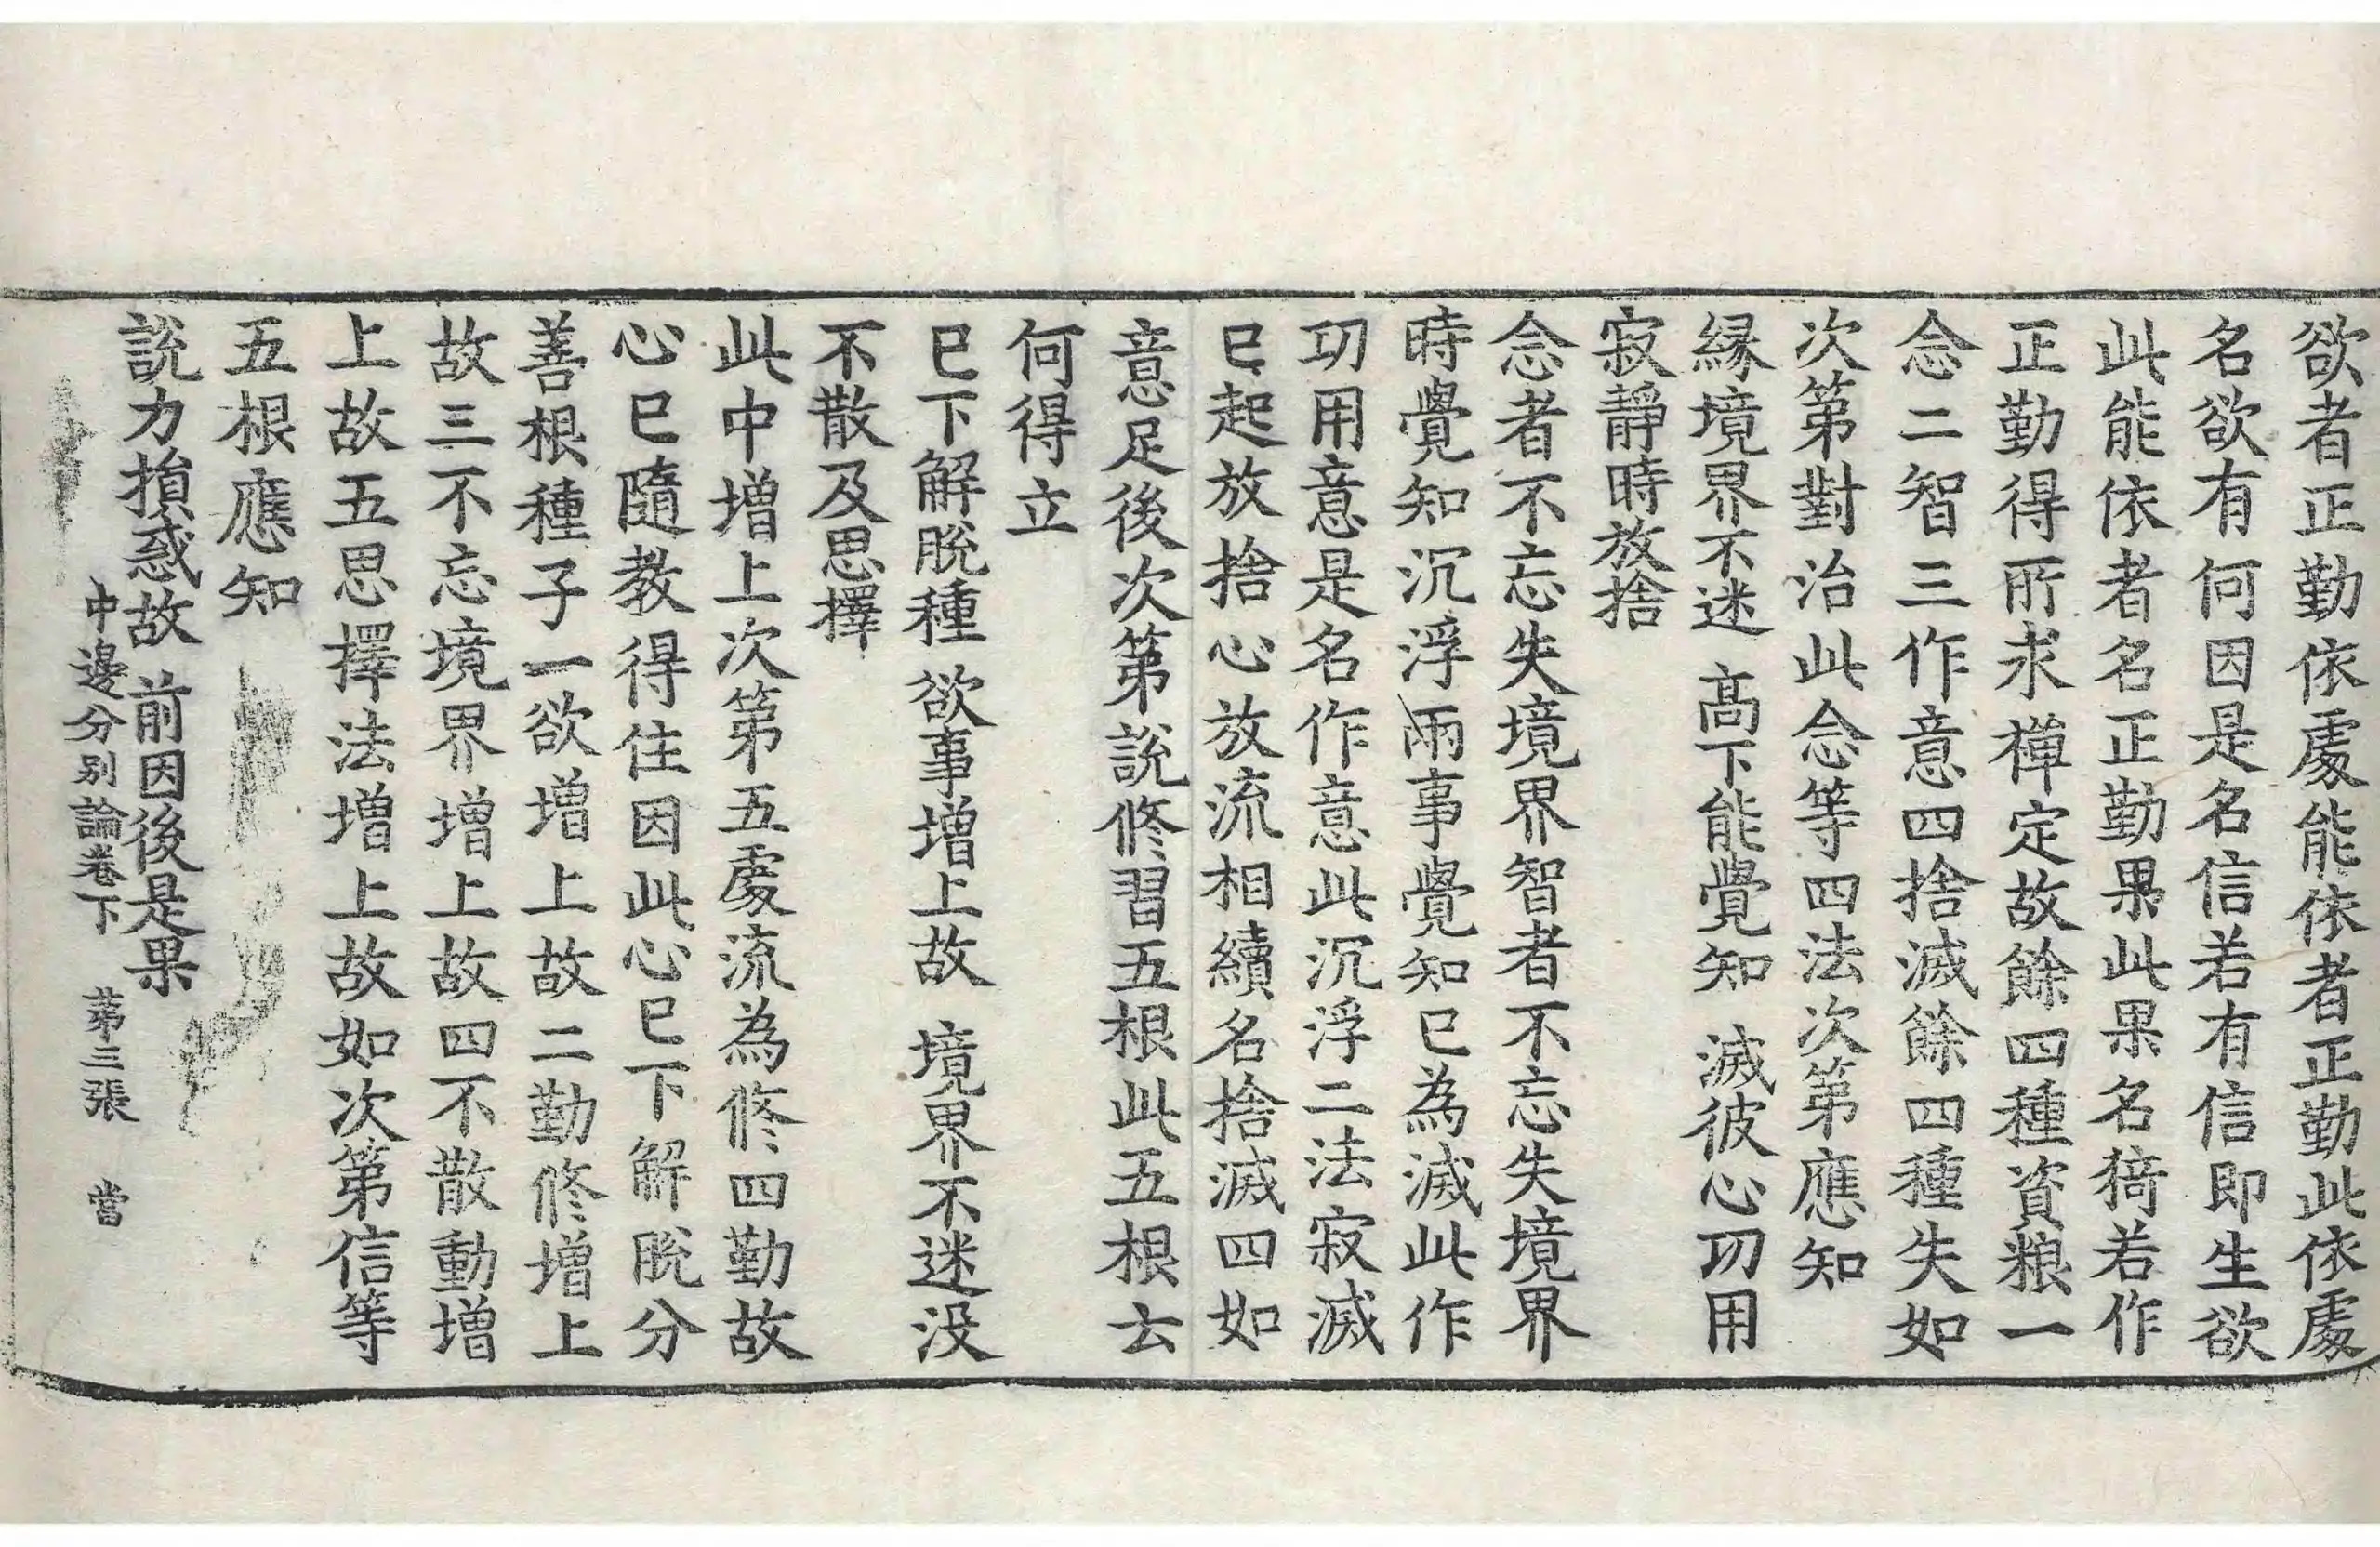 欲者正勤依處能依者正勤此依處
名欲有何因是名信若有信即生欲
此能依者名正勤果此果名猗若作
正勤得所求禪定故餘四種資粮一
念二智三作意四捨滅餘四種失如
次第對治此念等四法次第應知
緣境界不迷 高下能覺知 滅彼心功用
寂靜時放捨
念者不忘失境界智者不忘失境界
時覺知沉浮兩事覺知已為滅此作
功用意是名作意此沉浮二法寂滅
已起放捨心放流相續名捨滅四如
意足後次第說修習五根此五根云
何得立
已下解脫種 欲事增上故 境界不迷没
不散及思擇
此中增上次第五處流為修四勤故
心已隨教得住因此心已下解脫分
善根種子一欲增上故二勤修增上
故三不忘境界增上故四不散動增
上故五思擇法增上故如次第信等
五根應知
說力損惑故 前因後是果
中邊分別論卷下 苐三張 當